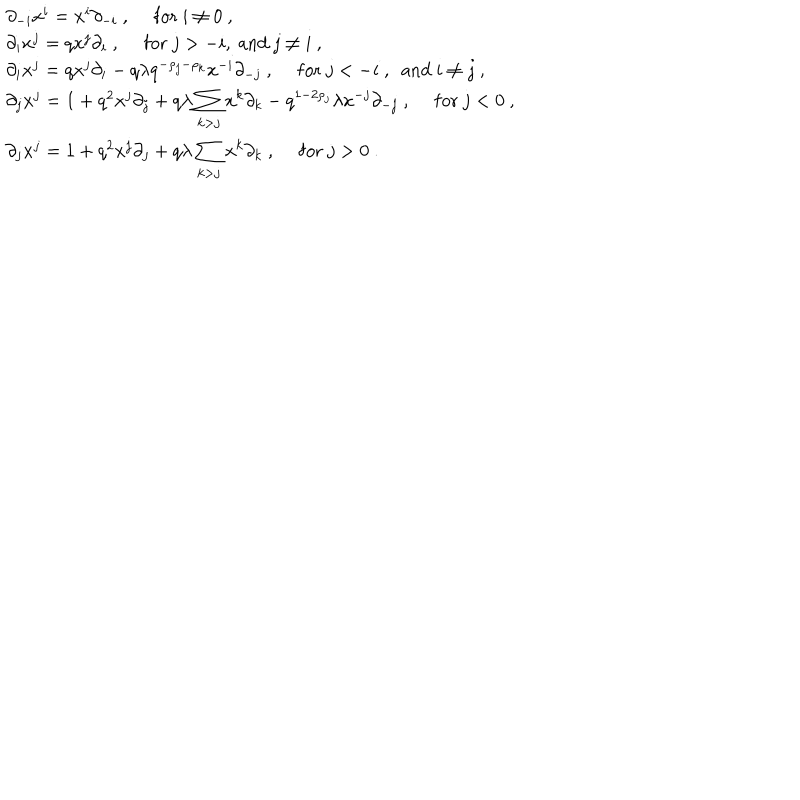 ∂_{-i}x^i = x^i∂_{-i} , for i ≠ 0 ,
∂_i x^j = qx^j∂_i , for j > -i, and j ≠ i ,
∂_i x^j = qx^j∂_i - qλq^{-ρ_j-ρ_k}x^{-i}∂_{-j} , for j < -i , and i ≠ j ,
∂_j x^j = 1 + q^2x^j∂_j + qλ∑_{k>j} x^k∂_k - q^{1-2ρ_j}λx^{-j}∂_{-j} , for j < 0 ,
∂_j x^j = 1 + q^2x^j∂_j + qλ∑_{k>j} x^k∂_k , for j > 0 .